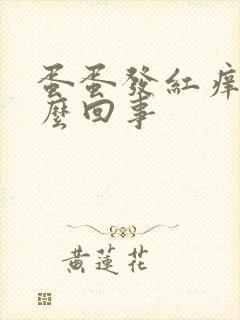 蛋蛋發紅痒
麼回事
黃蓮花